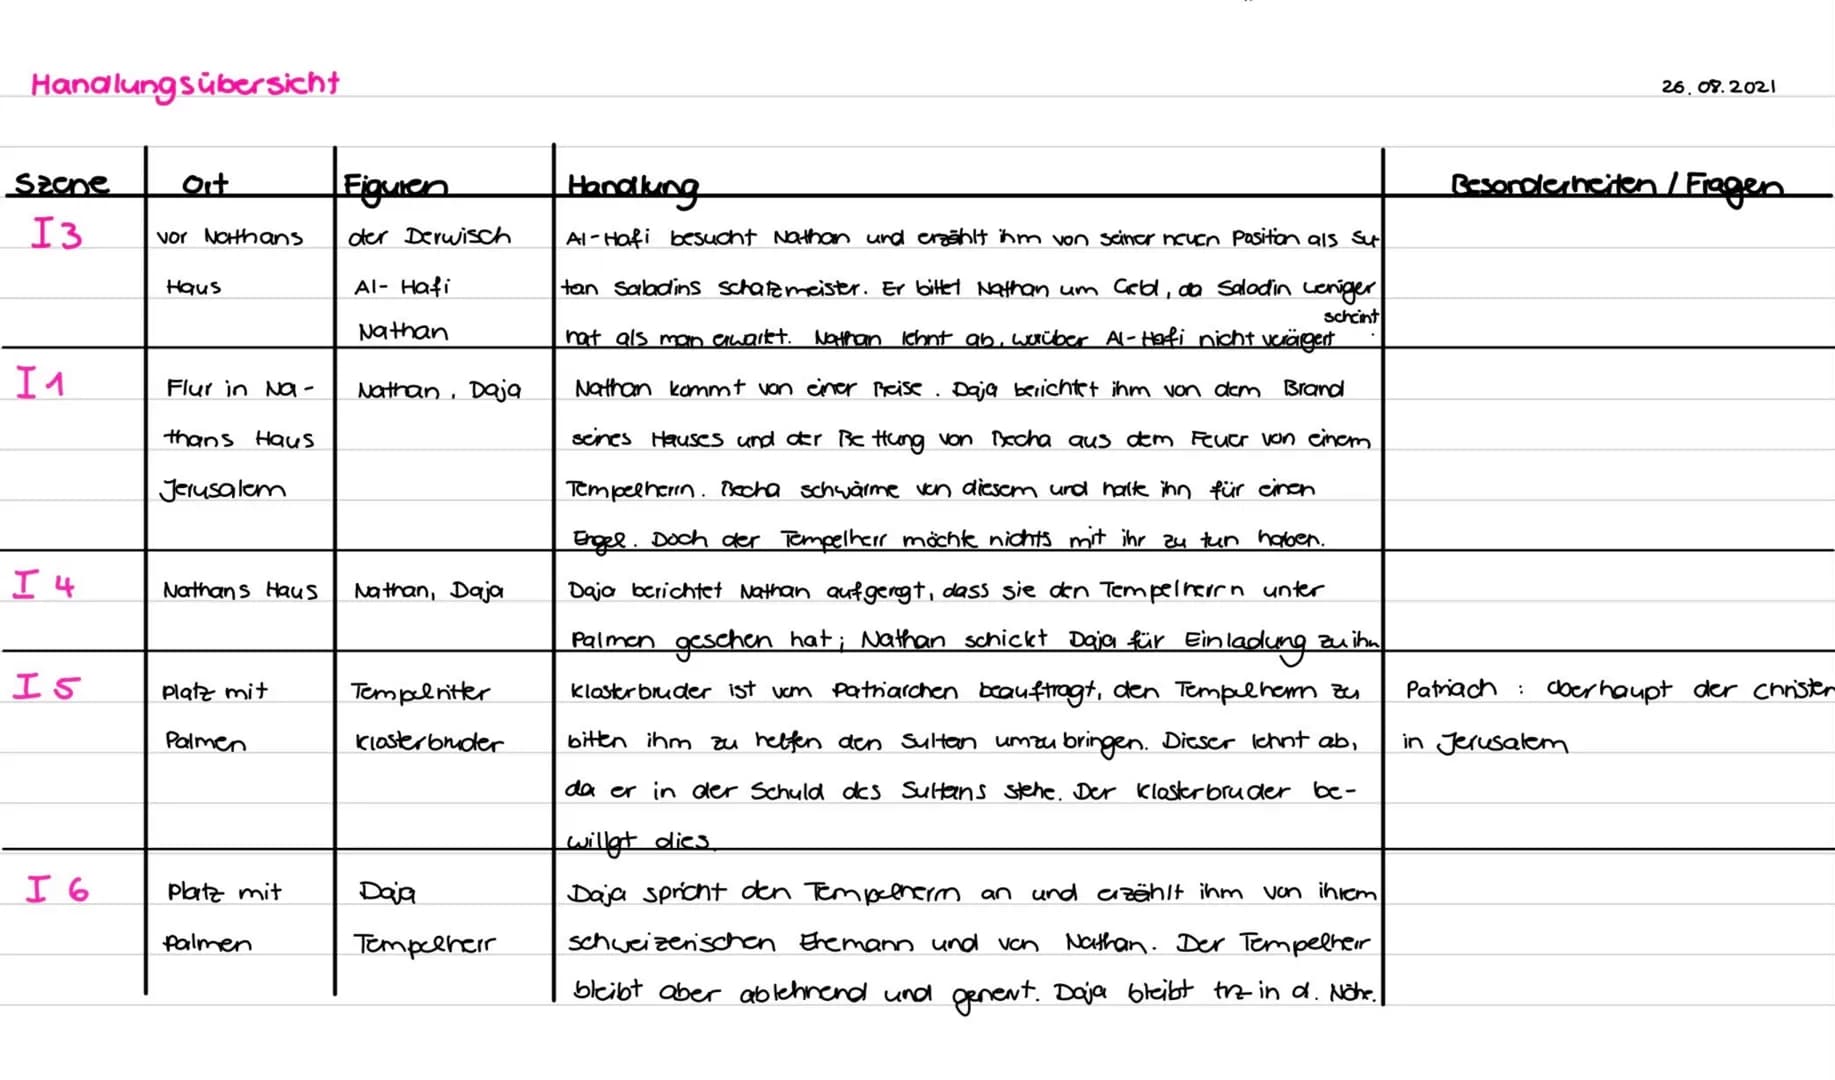 Handlungsübersicht
26.08.2021
Szene Ort Figuren Handlung Besonderheiten / Fragen
I 3 vor Nathans der Derwisch Al-Hafi besucht Nathan und erzählt ihm von seiner neuen Position als Su-
Haus Al-Hafi tan Saladins Schatzmeister. Er bittet Nathan um Geld, da Saladin weniger
Nathan hat als man erwartet. Nathan lehnt ab, worüber Al-Hafi nicht verärgert scheint.
I 1 Flur in Na- Nathan, Daja Nathan kommt von einer Reise. Daja berichtet ihm von dem Brand
thans Haus seines Hauses und der Rettung von Recha aus dem Feuer von einem
Jerusalem Tempelherrn. Recha schwärme von diesem und halte ihn für einen
Engel. Doch der Tempelherr möchte nichts mit ihr zu tun haben.
I 4 Nathans Haus Nathan, Daja Daja berichtet Nathan aufgeregt, dass sie den Tempelherrn unter
Palmen gesehen hat; Nathan schickt Daja für Einladung zu ihm
I 5 Platz mit Tempelritter Klosterbruder ist vom Patriarchen beauftragt, den Tempelherrn zu Patriach : Oberhaupt der Christen
Palmen Klosterbruder bitten ihm zu helfen den Sultan umzubringen. Dieser lehnt ab, in Jerusalem
da er in der Schuld des Sultans stehe. Der Klosterbruder be-
willgt dies.
I 6 Platz mit Daja Daja spricht den Tempelherrn an und erzählt ihm von ihrem
Palmen Tempelherr schweizerischen Ehemann und von Nathan. Der Tempelherr
bleibt aber ablehnend und genervt. Daja bleibt trz in d. Nähe.